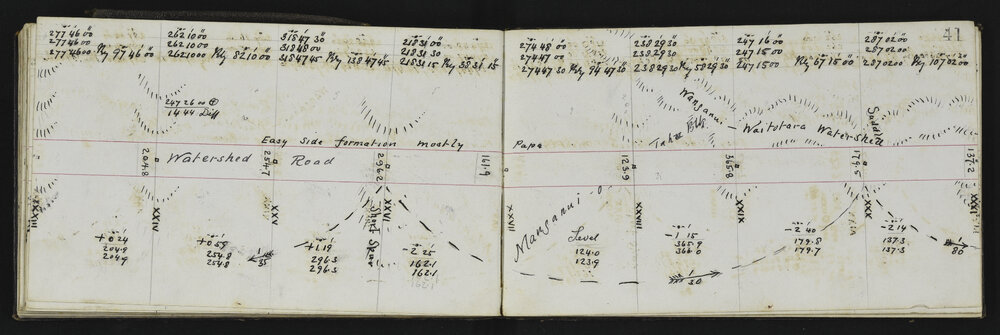 277 46 00 262 10 00 318 47 30 218 31 00
277 46 00 262 10 00 318 48 00 218 31 30
277 46 00 Rly 97 46 00 262 10 00 Rly 82 10 00 318 47 45 Rly 138 47 45 218 31 15 Rly 38 31 15
274 48 00 238 29 30 247 16 00 287 02 00 41
274 47 00 238 29 30 247 15 00 287 02 00
274 47 30 Rly 94 47 30 238 29 30 Rly 58 29 30 247 15 00 Rly 67 15 00 287 02 00 Rly 107 02 00
247 26 00
14 44 Diff
Wanganui - Waitotara Watershed
Saddle
Easy side formation mostly Papa
Watershed Road
204.8 254.7 296.2 161.9 123.9 365.8 179.5 137.2
XXIV XXV XXVI XXVII XXVIII XXIX XXX XXXI
Short Spur
Manganui
+0 24
204.9
204.9
+0 59
254.8
254.8
+1 19
296.3
296.3
-2 25
162.1
162.1
162.1
Level
124.0
123.9
-1 15
365.9
366.0
-2 40
179.8
179.7
-2 14
137.3
137.3
1
35
1
30
1
80